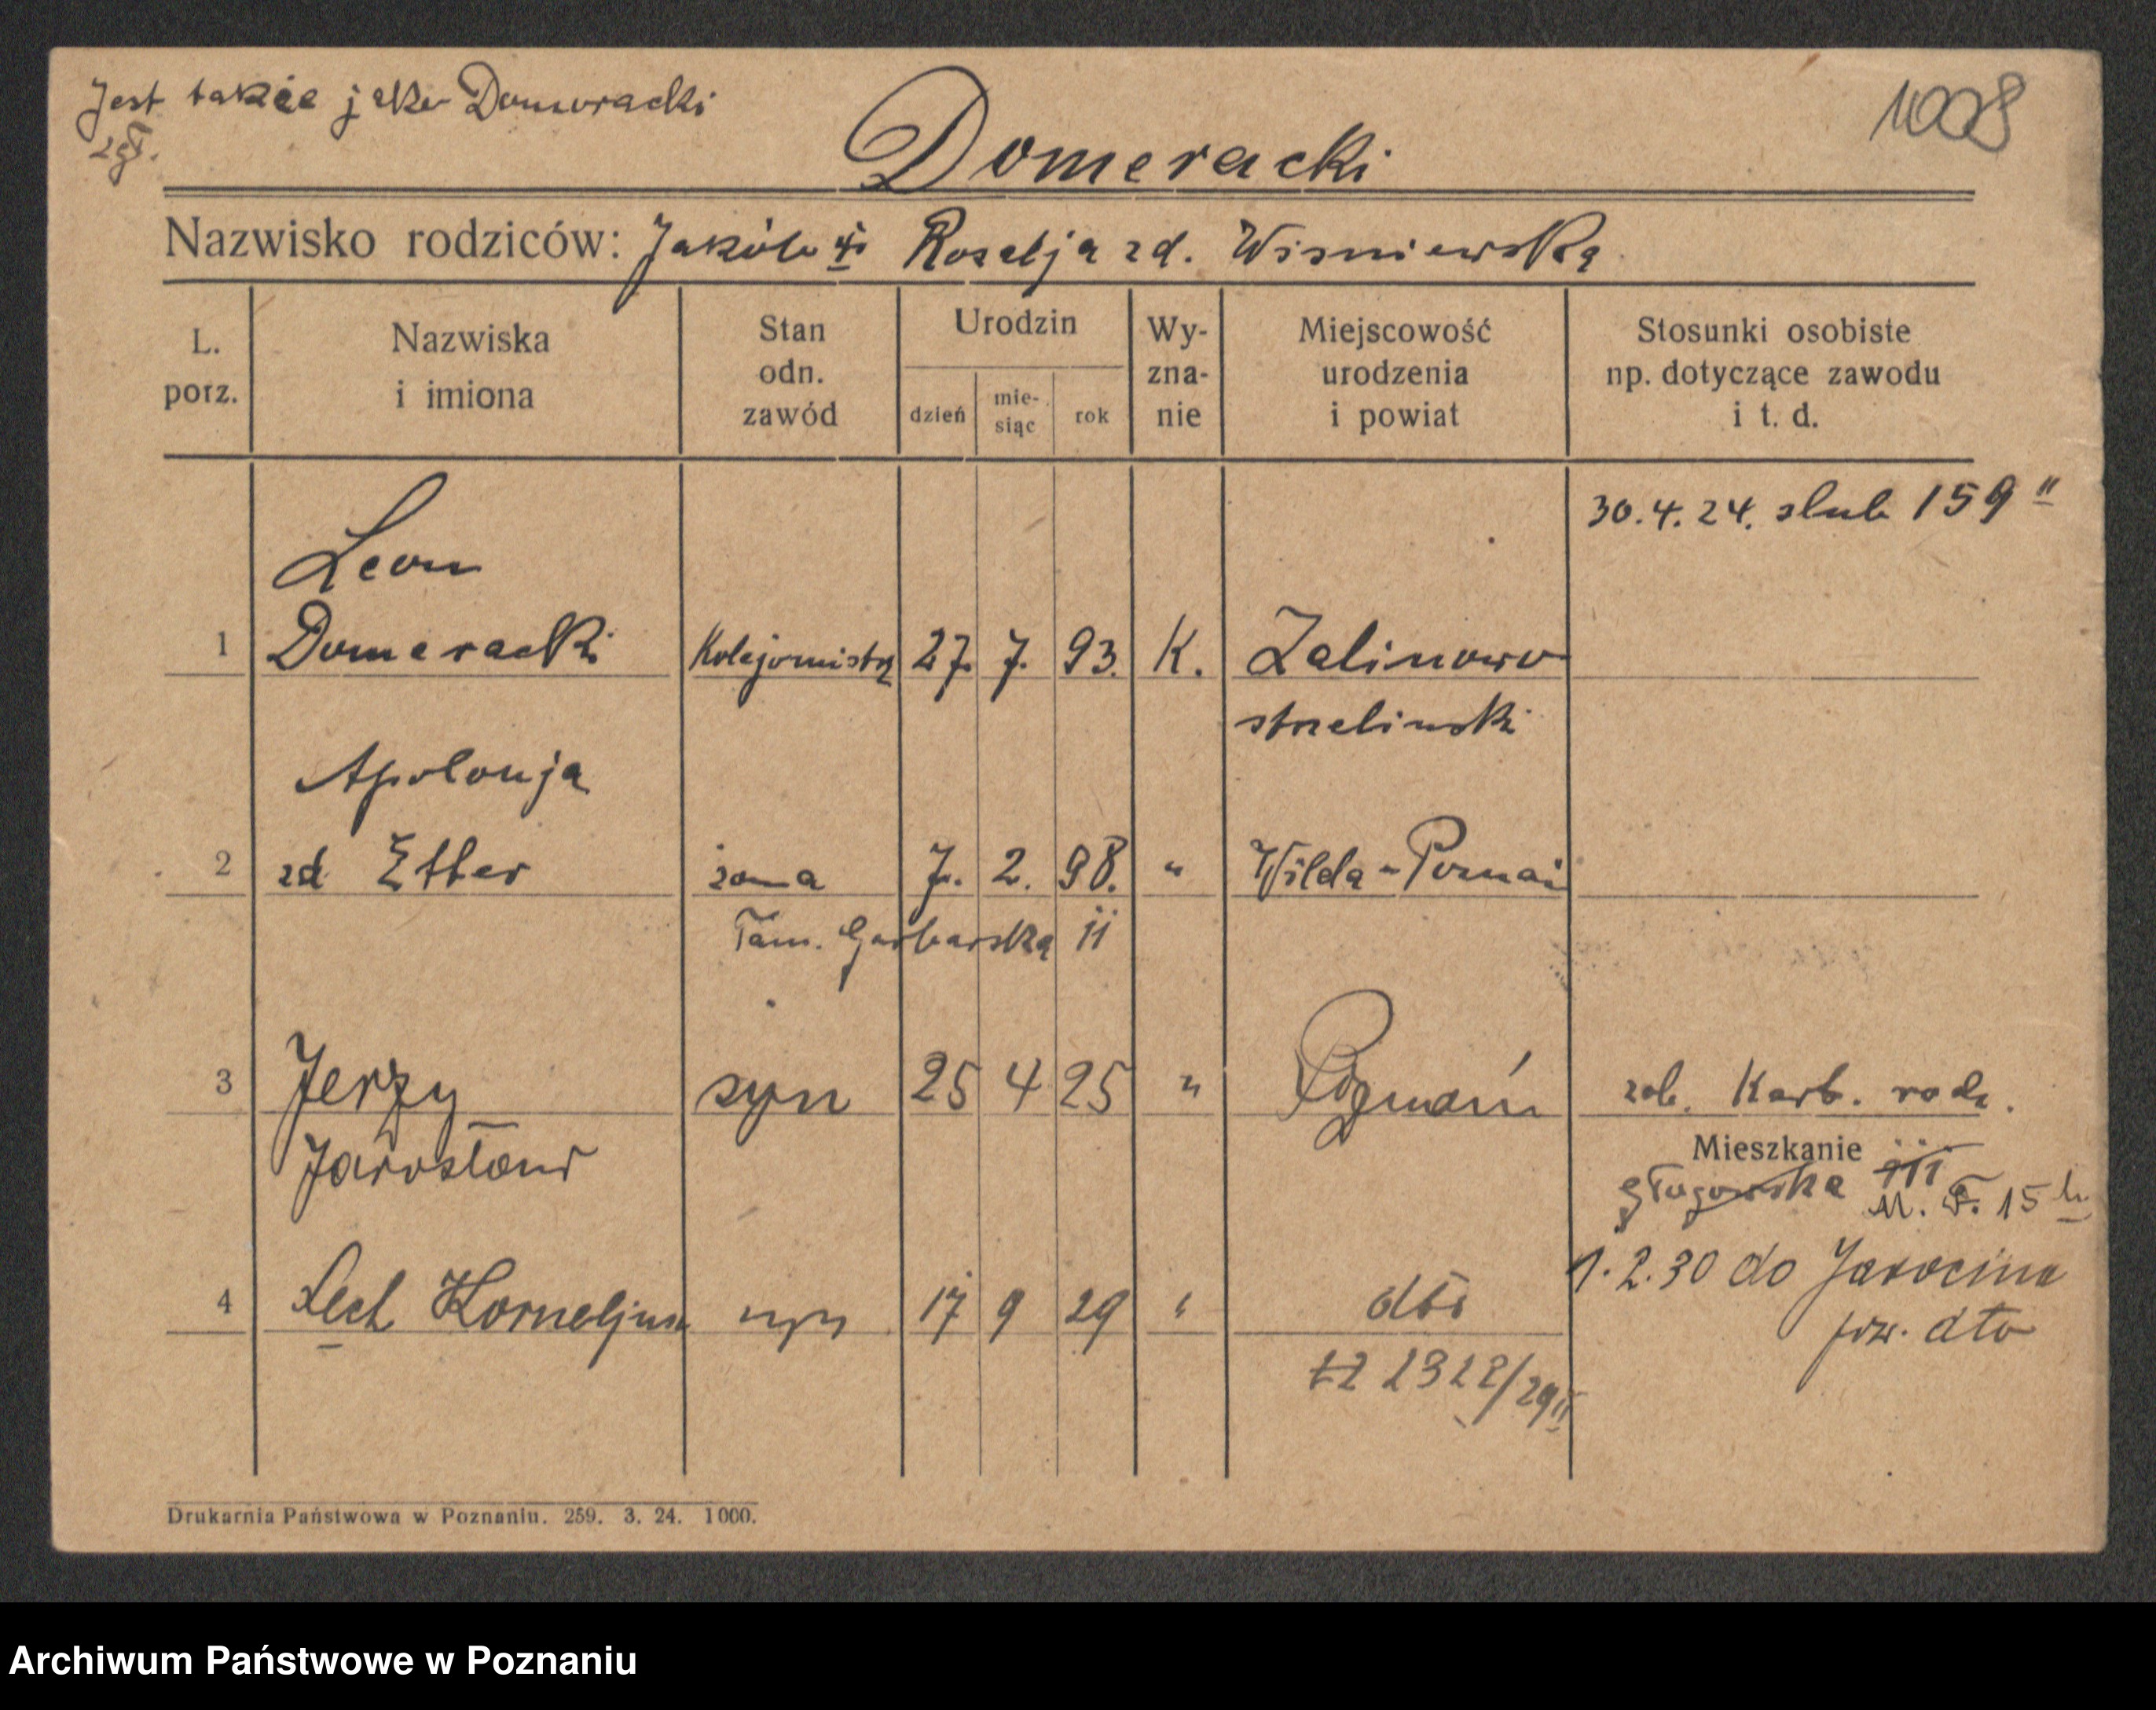 Jest także jako Domoracki
zgł.
1008
Domeracki
Nazwisko rodziców: Jakób i Rozalja zd. Wisniewska
L. porz. Nazwiska i imiona Stan odn. zawód Urodzin dzień mie- siąc rok Wy- zna- nie Miejscowość urodzenia i powiat Stosunki osobiste np. dotyczące zawodu i t. d.
30.4.24. slub 159 II
Leon
1 Domeracki Kolejomistrz 27. 7. 93. K. Zalinowo
strzelinski
Apolonja
2 zd Etber żona 7. 2. 98. " Wilda - Poznań
Tam. Garbarska II
3 Jerzy syn 25 4 25 " Poznań zob. Kart. rodz.
Jarosław
Mieszkanie
głogowska III
M. F. 15 b
1.2.30 do Jarocina
pow. dto
4 Lech Korneljusz syn 17 9 29 " dto
2322/29 II
Drukarnia Państwowa w Poznaniu. 259. 3. 24. 1000.
Archiwum Państwowe w Poznaniu